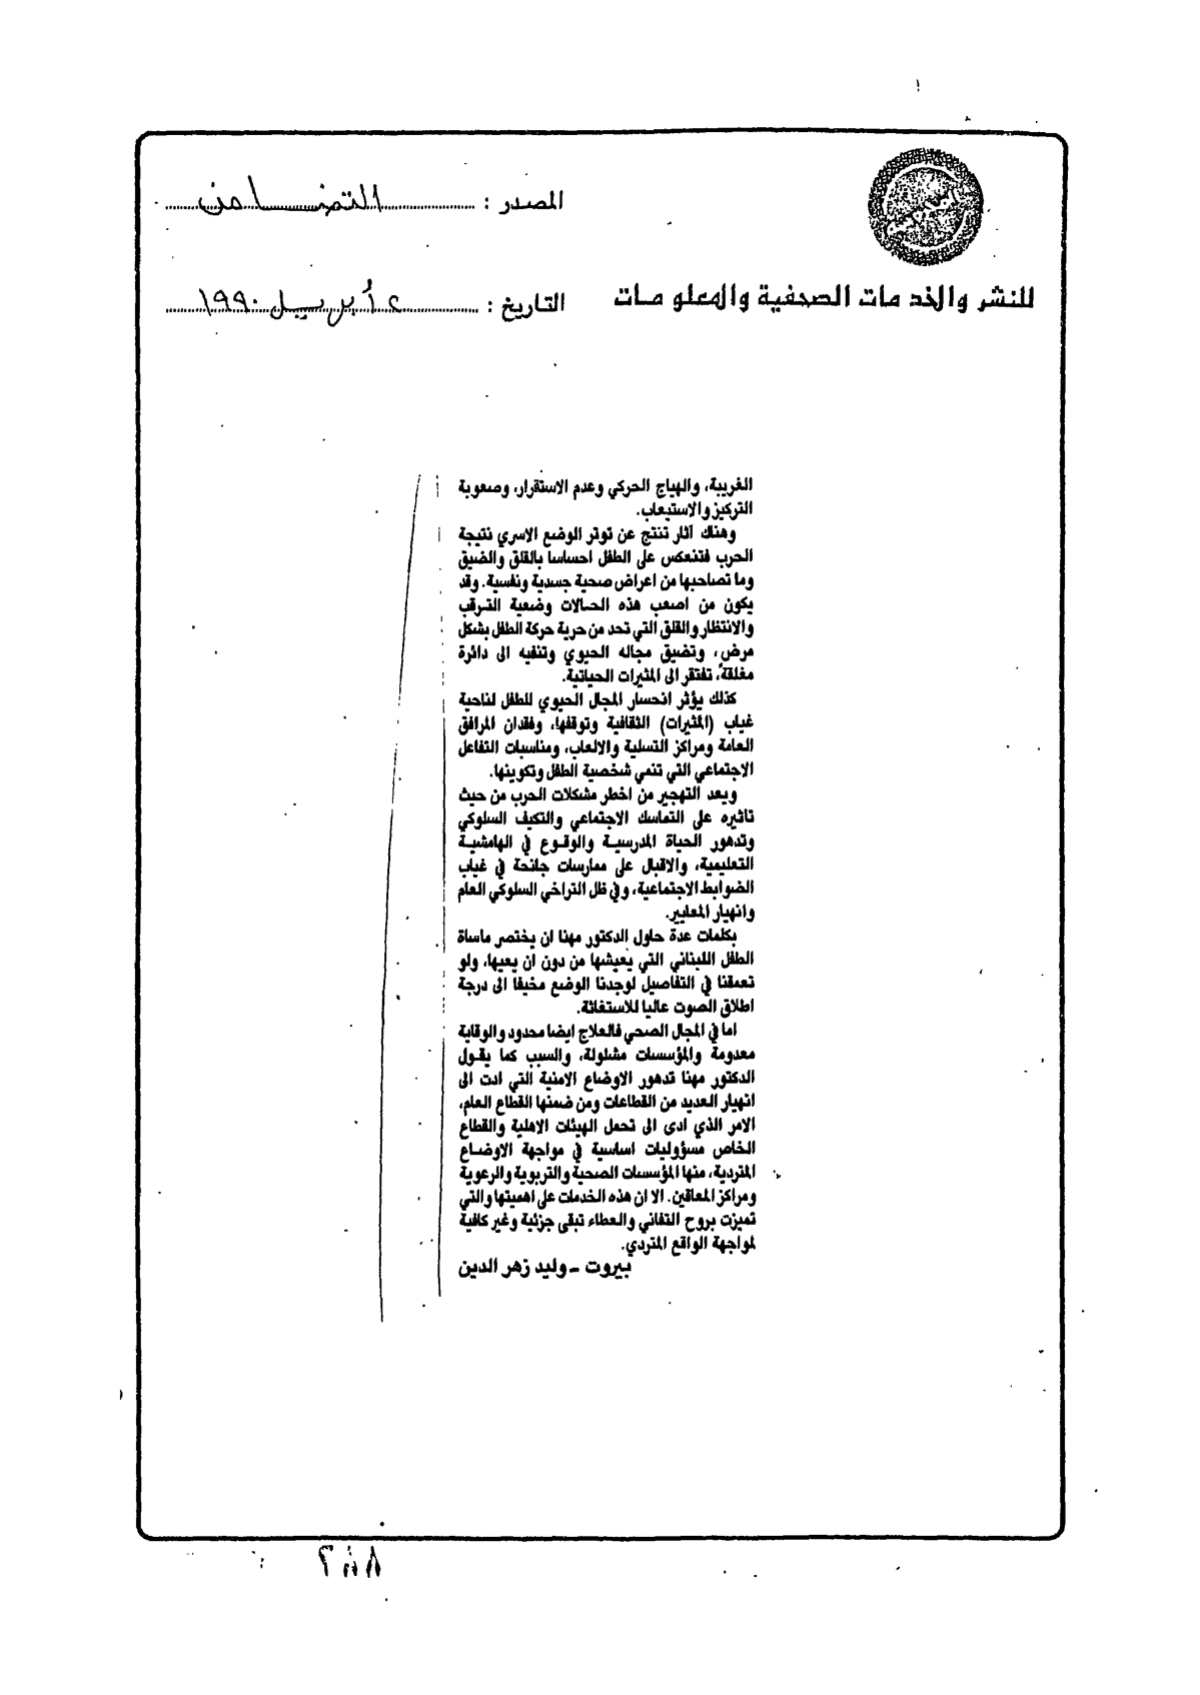 المصدر : التضامن
للنشر والخدمات الصحفية والمعلومات
التاريخ : أبريل ١٩٩٠
الغريبة، والهياج الحركي وعدم الاستقرار، وصعوبة
التركيز والاستيعاب.
وهناك آثار تنتج عن توتر الوضع الاسري نتيجة
الحرب فتنعكس على الطفل احساسا بالقلق والضيق
وما تصاحبها من اعراض صحية جسدية ونفسية. وقد
يكون من اصعب هذه الحالات وضعية الترقب
والانتظار والقلق التي تحد من حرية حركة الطفل بشكل
مرض، وتضيق مجاله الحيوي وتنفيه الى دائرة
مغلقة، تفتقر الى المثيرات الحياتية.
كذلك يؤثر انحسار المجال الحيوي للطفل لناحية
غياب (المثيرات) الثقافية وتوقفها، وفقدان المرافق
العامة ومراكز التسلية والالعاب، ومناسبات التفاعل
الاجتماعي التي تنمي شخصية الطفل وتكوينها.
ويعد التهجير من اخطر مشكلات الحرب من حيث
تاثيره على التماسك الاجتماعي والتكيف السلوكي
وتدهور الحياة المدرسية والوقوع في الهامشية
التعليمية، والاقبال على ممارسات جانحة في غياب
الضوابط الاجتماعية، وفي ظل التراخي السلوكي العام
وانهيار المعايير.
بكلمات عدة حاول الدكتور مهنا ان يختصر ماساة
الطفل اللبناني التي يعيشها من دون ان يعيها، ولو
تعمقنا في التفاصيل لوجدنا الوضع مخيفا الى درجة
اطلاق الصوت عاليا للاستغاثة.
اما في المجال الصحي فالعلاج ايضا محدود والوقاية
معدومة والمؤسسات مشلولة، والسبب كما يقول
الدكتور مهنا تدهور الاوضاع الامنية التي ادت الى
انهيار العديد من القطاعات ومن ضمنها القطاع العام،
الامر الذي ادى الى تحمل الهيئات الاهلية والقطاع
الخاص مسؤوليات اساسية في مواجهة الاوضاع
المتردية، منها المؤسسات الصحية والتربوية والرعوية
ومراكز المعاقين. الا ان هذه الخدمات على اهميتها والتي
تميزت بروح التفاني والعطاء تبقى جزئية وغير كافية
لمواجهة الواقع المتردي.
بيروت - وليد زهر الدين